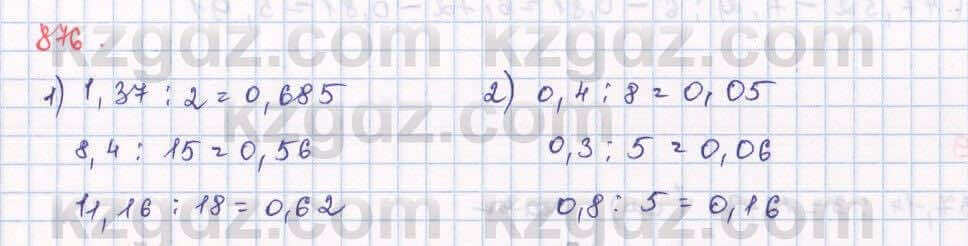 876.
1) 1,37 : 2 = 0,685
8,4 : 15 = 0,56
11,16 : 18 = 0,62
2) 0,4 : 8 = 0,05
0,3 : 5 = 0,06
0,8 : 5 = 0,16
kzgdz.com